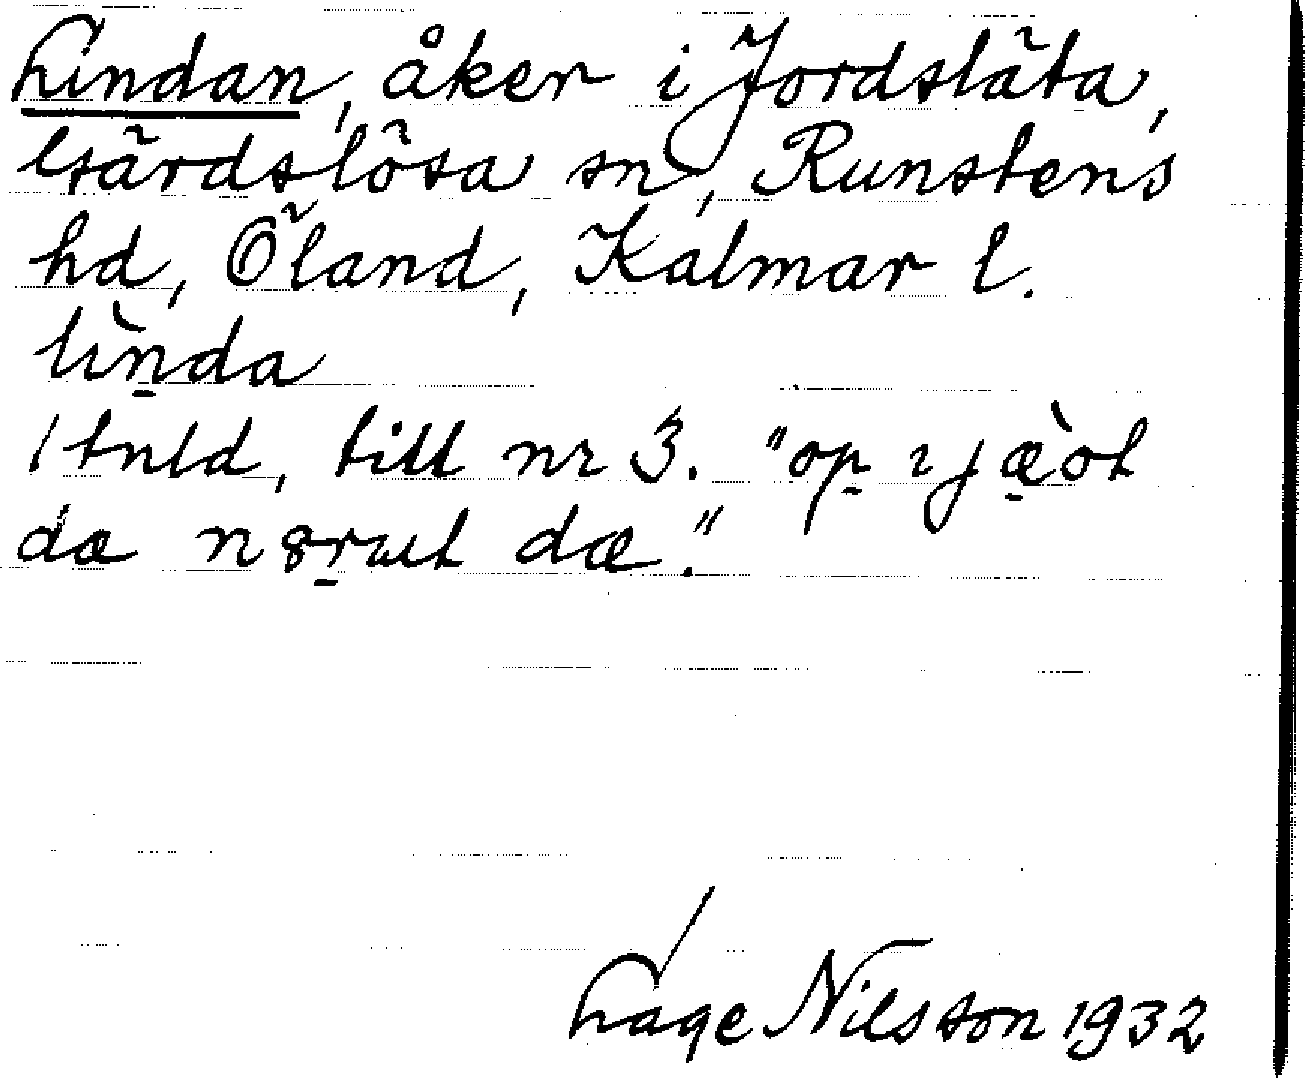 Lindan, åker i Jordsläta,
Gärdslösa sn, Runstens
hd, Öland, Kalmar l.
lìṉda
1 tnld, till nr 3. "op
da da."
Lage Nilsson 1932